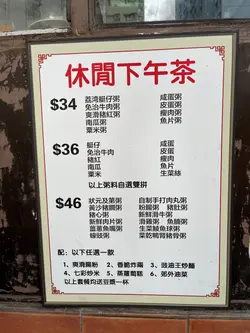 休閒下午茶
$34
荔灣艇仔粥 咸蛋粥
免治牛肉粥 皮蛋粥
爽滑豬紅粥 瘦肉粥
南瓜粥 魚片粥
粟米粥
$36
艇仔 咸蛋
免治牛肉 皮蛋
豬紅 瘦肉
南瓜 魚片
粟米 生菜絲
以上粥料自選雙拼
$46
狀元及第粥 自制手打肉丸粥
黃沙豬膶粥 粉腸粥 豬肚粥
豬心粥 新鮮滑牛粥
新鮮肉片粥 滑雞粥 魚腩粥
薑蔥魚嘴粥 生菜鯪魚球粥
蠔豉粥 菜乾鴨腎豬骨粥
配：以下任選一款
1、爽滑腸粉 2、香脆炸兩 3、豉油王炒麵
4、七彩炒米 5、蒸蘿蔔糕 6、郊外油菜
以上套餐均送豆漿一杯